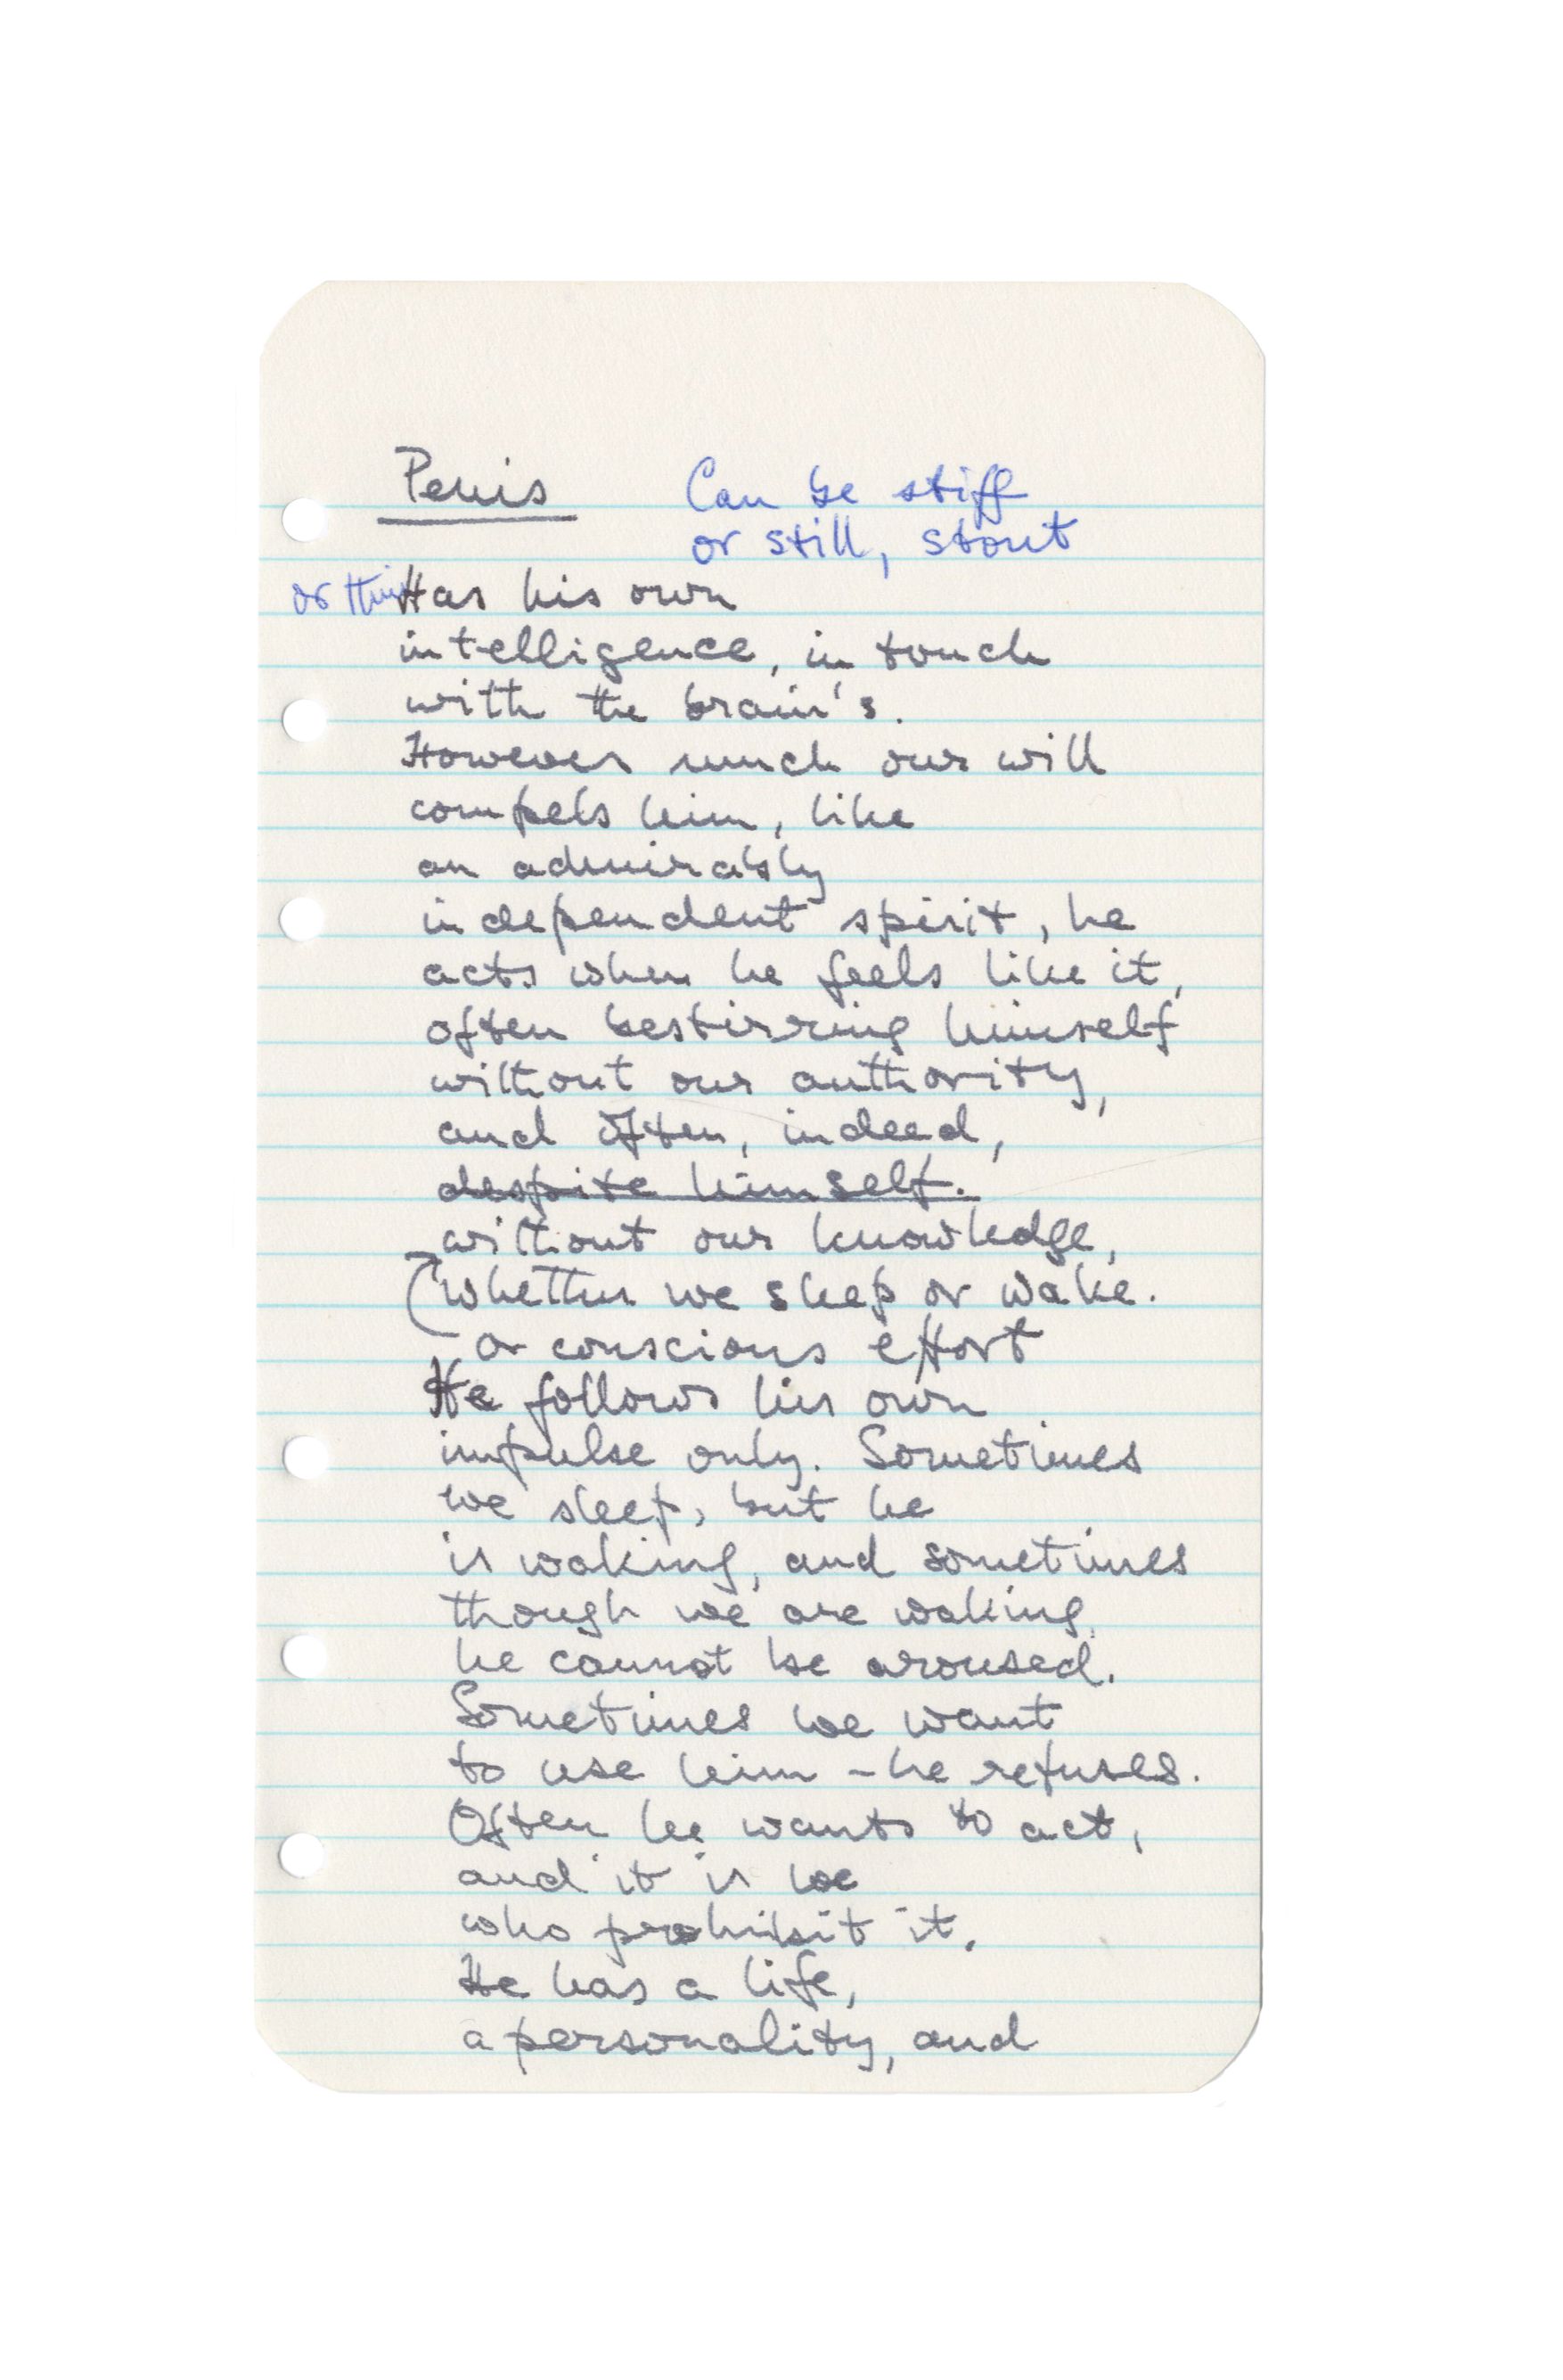 Penis Can be stiff
or still, stout
or thin Has his own
intelligence, in touch
with the brain's.
However much our will
compels him, like
an admirably
independent spirit, he
acts when he feels like it,
often bestirring himself
without our authority,
and often, indeed,
despite himself.
without our knowledge,
whether we sleep or wake.
or conscious effort
He follows his own
impulse only. Sometimes
we sleep, but he
is waking, and sometimes
though we are waking,
he cannot be aroused.
Sometimes we want
to use him – he refuses.
Often he wants to act,
and it is we
who prohibit it.
He has a life,
a personality, and